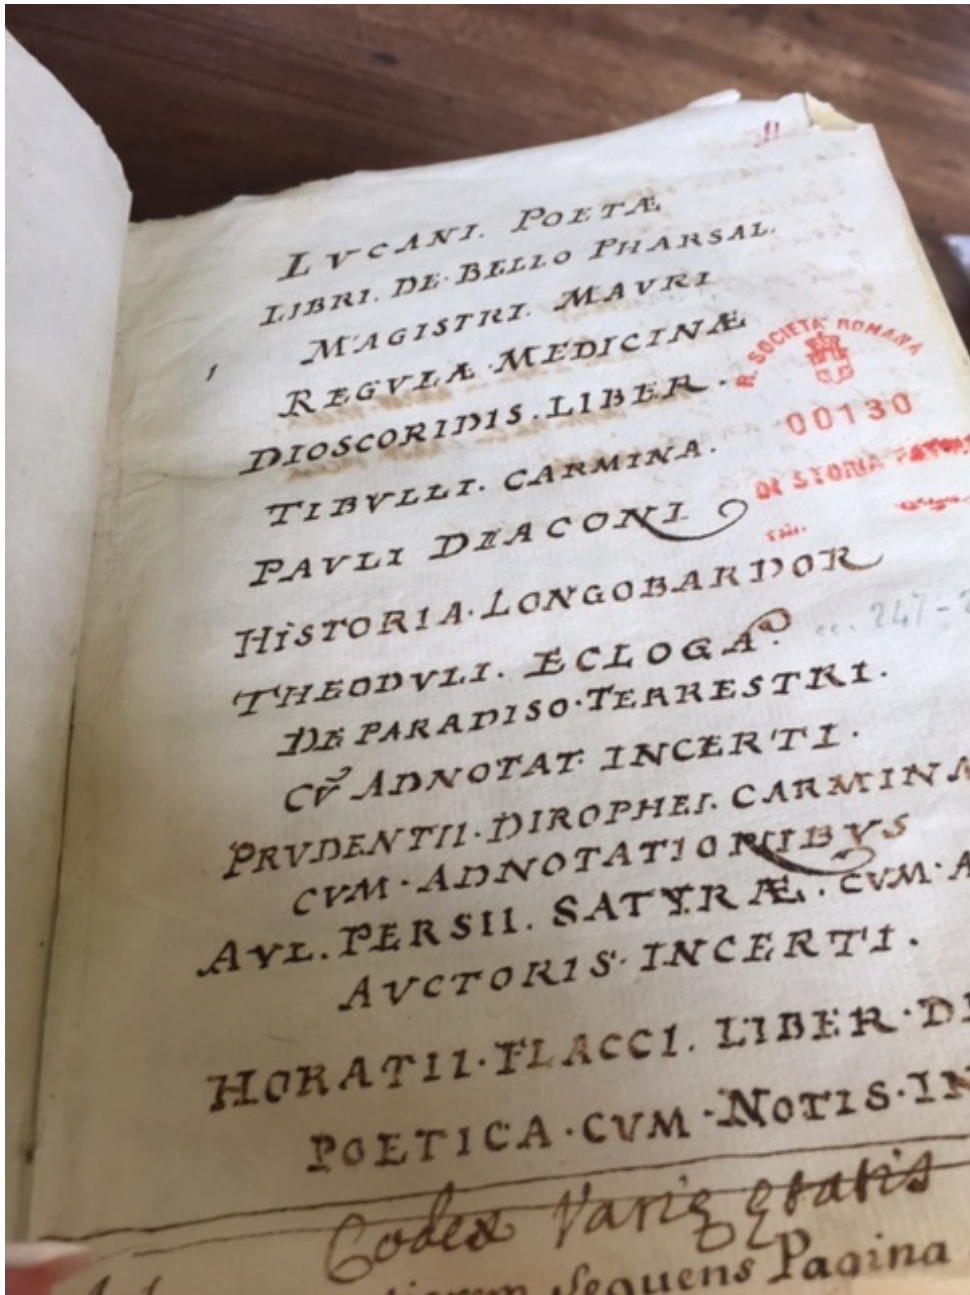 LVCANI. POETÆ
LIBRI. DE. BELLO PHARSAL.
MAGISTRI. MAVRI
REGVLÆ. MEDICINÆ
DIOSCORIDIS. LIBER.
TIBVLLI. CARMINA.
PAVLI DIACONI
HISTORIA. LONGOBARDOR
THEODVLI. ECLOGA
DE PARADISO. TERRESTRI.
CṼ ADNOTAT. INCERTI.
PRVDENTII. DIROPHEI. CARMINA
CVM. ADNOTATIONIBVS
AVL. PERSII. SATYRÆ. CVM. A
AVCTORIS. INCERTI.
HORATII. FLACCI. LIBER. DE
POETICA. CVM. NOTIS. IN
Codex Varię ętatis
sequens Pagina
R. SOCIETA' ROMANA
00130
DI STORIA PATRIA
cc. 247-2